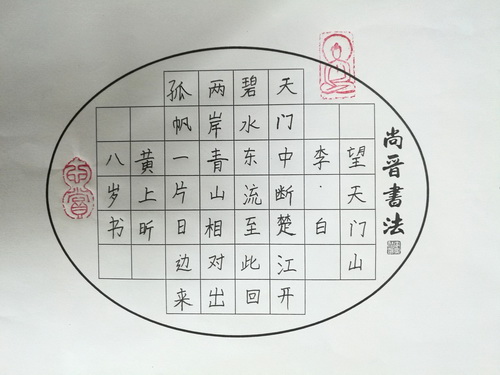 尚晋書法
望天门山
李·白
天门中断楚江开
碧水东流至此回
两岸青山相对出
孤帆一片日边来
黄上昕
八岁书